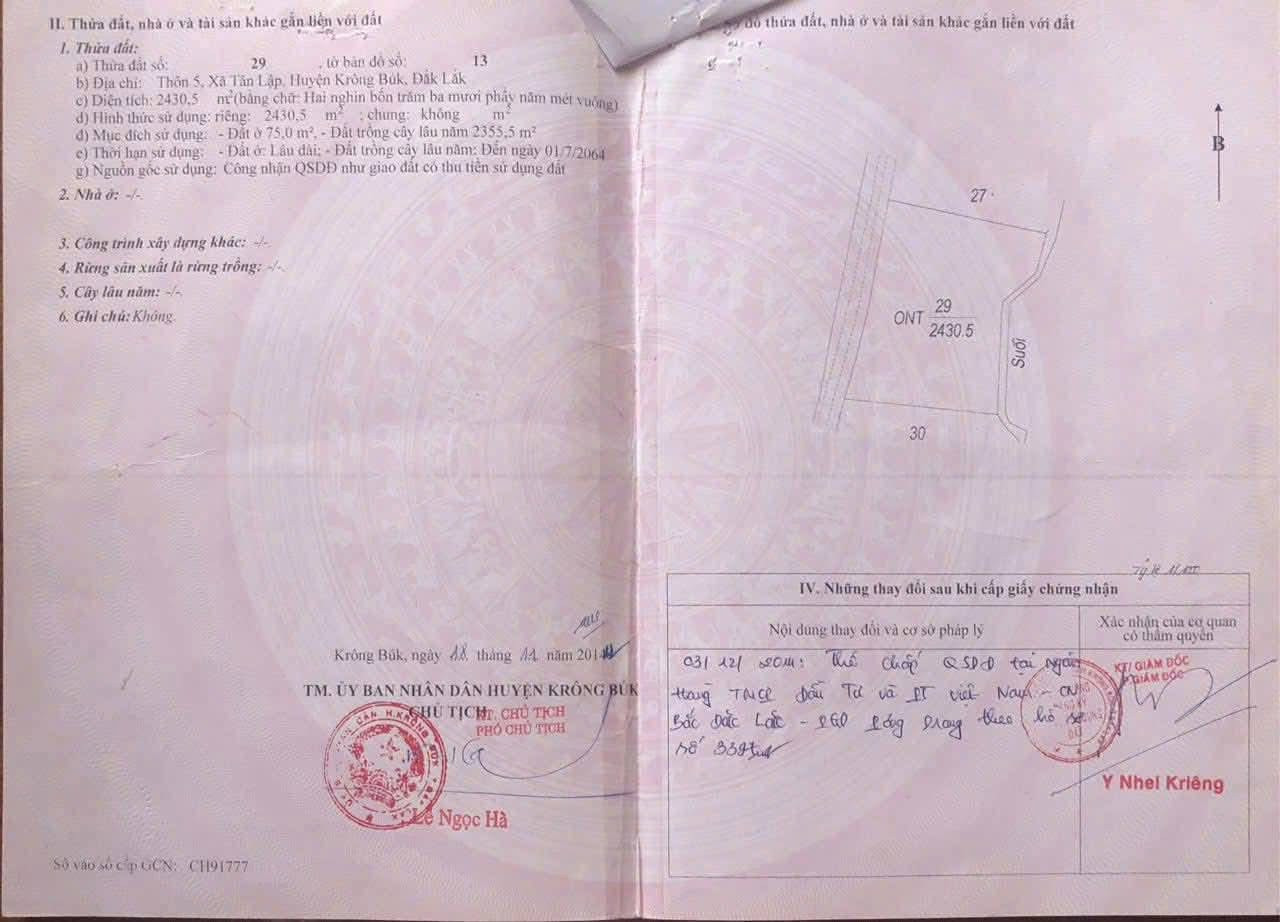 II. Thửa đất, nhà ở và tài sản khác gắn liền với đất
1. Thửa đất:
a) Thửa đất số: 29 , tờ bản đồ số: 13
b) Địa chỉ: Thôn 5, Xã Tân Lập, Huyện Krông Búk, Đắk Lắk
c) Diện tích: 2430,5 m²(bằng chữ: Hai nghìn bốn trăm ba mươi phẩy năm mét vuông)
d) Hình thức sử dụng: riêng: 2430,5 m² ; chung: không m²
đ) Mục đích sử dụng: - Đất ở 75,0 m², - Đất trồng cây lâu năm 2355,5 m²
e) Thời hạn sử dụng: - Đất ở: Lâu dài; - Đất trồng cây lâu năm: Đến ngày 01/7/2064
g) Nguồn gốc sử dụng: Công nhận QSDĐ như giao đất có thu tiền sử dụng đất
2. Nhà ở: -/-.
3. Công trình xây dựng khác: -/-.
4. Rừng sản xuất là rừng trồng: -/-.
5. Cây lâu năm: -/-.
6. Ghi chú: Không.
Krông Búk, ngày 18 tháng 11 năm 2014
TM. ỦY BAN NHÂN DÂN HUYỆN KRÔNG BÚK
CHỦ TỊCH
KT. CHỦ TỊCH
PHÓ CHỦ TỊCH
Lê Ngọc Hà
Số vào sổ cấp GCN: CH91777
đồ thửa đất, nhà ở và tài sản khác gắn liền với đất
B
27
ONT 29
2430.5
Suối
30
IV. Những thay đổi sau khi cấp giấy chứng nhận
Nội dung thay đổi và cơ sở pháp lý
Xác nhận của cơ quan
có thẩm quyền
03/12/2014: Thế chấp QSDĐ tại Ngân
Hàng TMCP Đầu Tư và PT Việt Nam - CN
Bắc Đắc Lắc - PGD theo hồ sơ
số
KT/ GIÁM ĐỐC
GIÁM ĐỐC
Y Nhel Kriêng